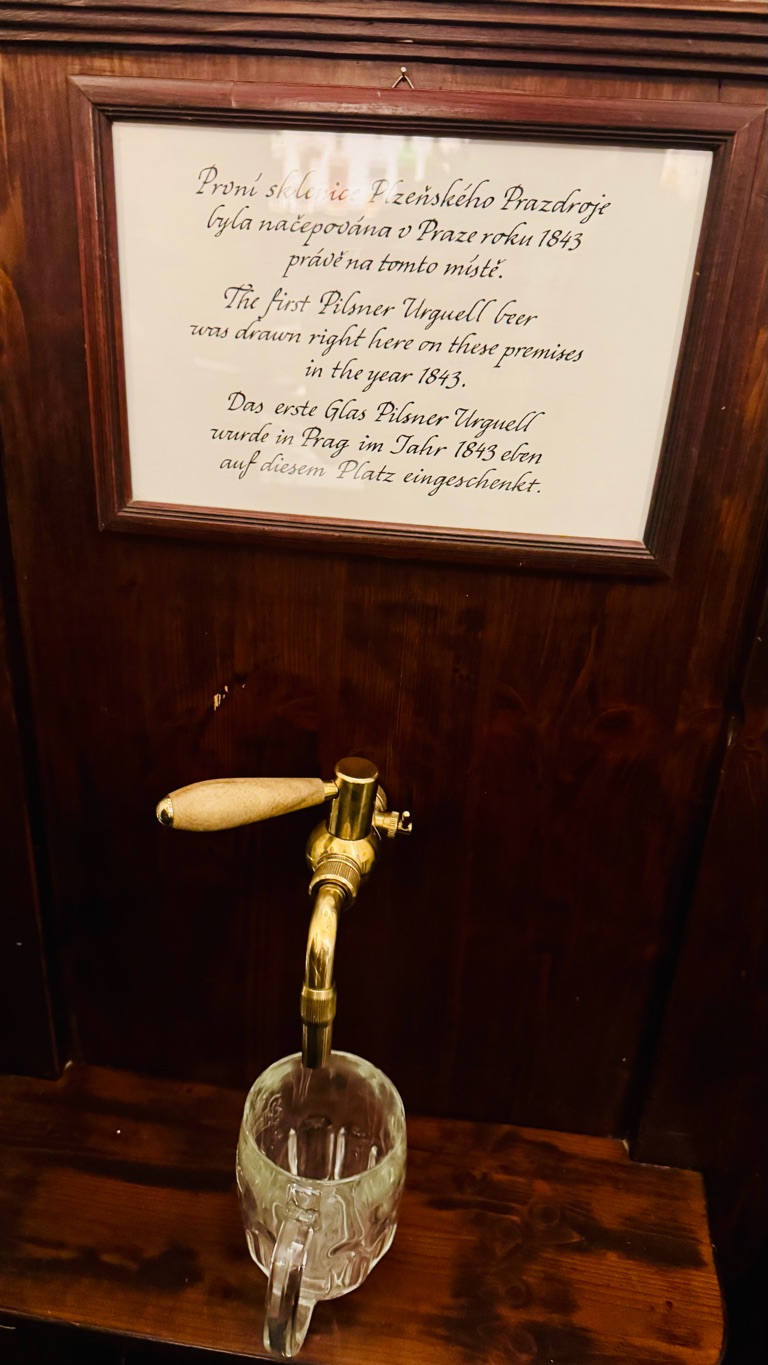 První sklenice Plzeňského Prazdroje
byla načepována v Praze roku 1843
právě na tomto místě.
The first Pilsner Urguell beer
was drawn right here on these premises
in the year 1843.
Das erste Glas Pilsner Urguell
wurde in Prag im Jahr 1843 eben
auf diesem Platz eingeschenkt.